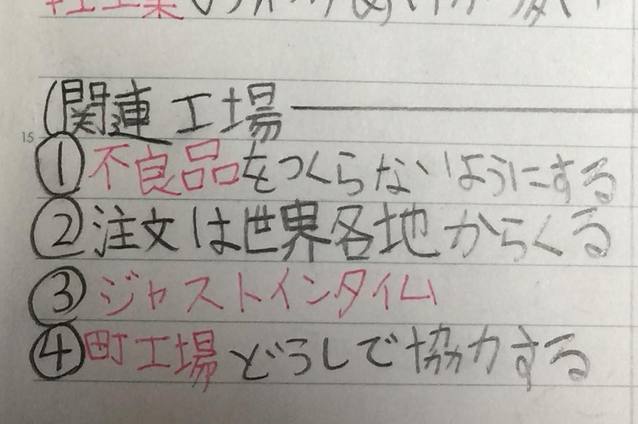 軽工業
(関連工場
15
①不良品をつくらないようにする
②注文は世界各地からくる
③ジャストインタイム
④町工場どうしで協力する